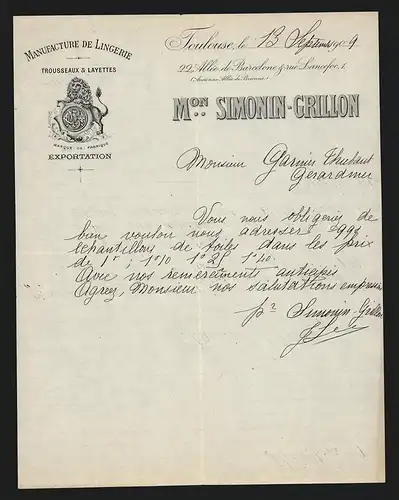 MANUFACTURE DE LINGERIE
TROUSSEAUX & LAYETTES
MARQUE DE FABRIQUE
EXPORTATION
Toulouse, le 13 Septembre 1909
22 Allée de Barcelone & rue Lancefoc, 1
(Ancienne Allée de Brienne)
MON SIMONIN-GRILLON
Monsieur Garnier Thiebaut
Gerardmer
Vous nous obligeriez de
bien vouloir nous adresser
échantillons de toiles dans les prix
de 1f, 1f10 1f25 1f40.
Avec nos remerciements anticipés
Agréez, Monsieur nos salutations empressées
pr Simonin-Grillon